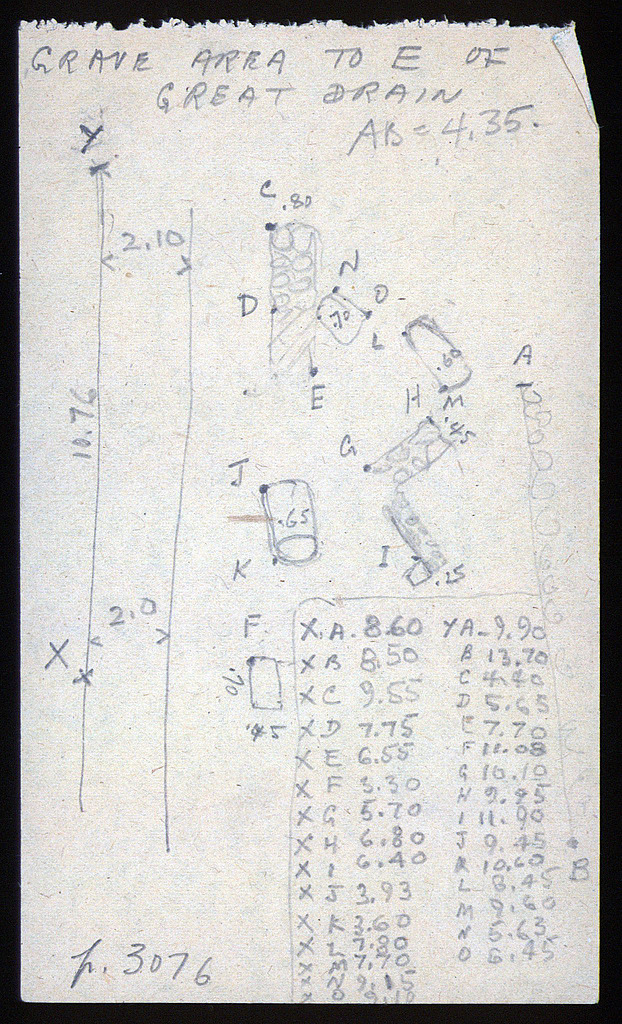 GRAVE AREA TO E OF
GREAT DRAIN
AB = 4.35.
Y
C .80
2.10
N
D
.70
O
L
.60
A
E
H
M
.45
10.76
G
J
.65
K
I
.25
2.0
F
X
.70
.45
X A 8.60 YA - 9.90
X B 8.50 B 13.70
X C 9.55 C 4.40
X D 7.75 D 5.65
X E 6.55 E 7.70
X F 3.30 F 11.08
X G 5.70 G 10.10
X H 6.80 H 9.95
X I 6.40 I 11.90
X J 3.93 J 9.45
X K 3.60 K 10.60
X L 7.80 L 8.45
X M 7.70 M 9.60
X N 9.15 N 5.63
X O 9.10 O 6.45
B
p. 3076